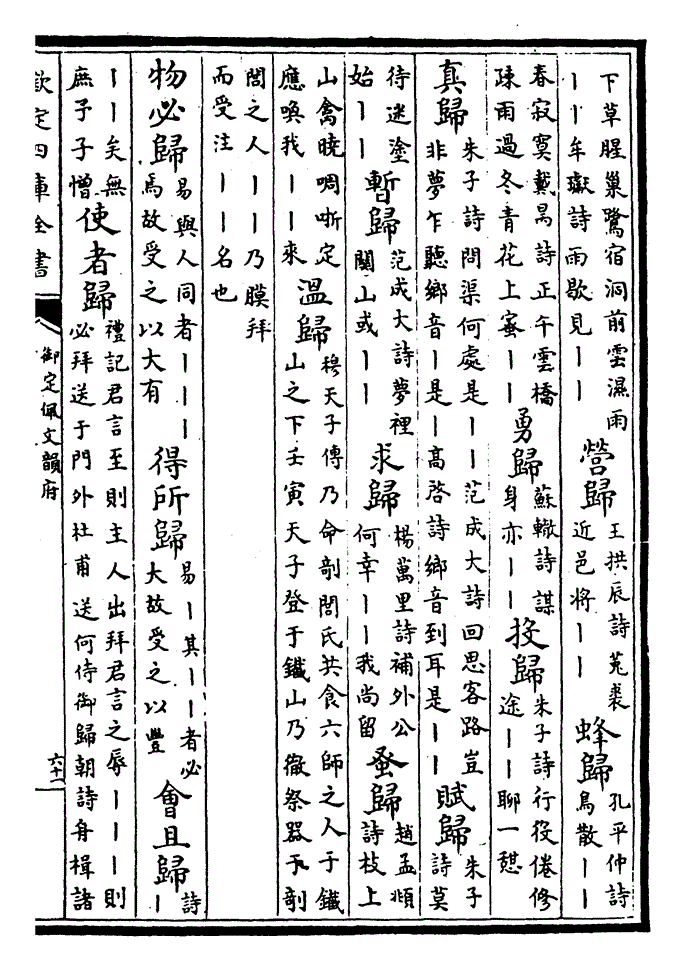 下草腥巢鷺宿洞前雲濕雨
丨丨牟巘詩雨歇見丨丨
營歸
王拱辰詩菟裘
近邑將丨丨
蜂歸
孔平仲詩
鳥散丨丨
春寂寞戴昺詩正午雲橋
疎雨過冬青花上蜜丨丨
勇歸
蘇轍詩謀
身亦丨丨
投歸
朱子詩行役倦修
途丨丨聊一憇
真歸
朱子詩問渠何處是丨丨范成大詩回思客路豈
非夢乍聽鄉音丨是丨高啓詩鄉音到耳是丨丨
賦歸
朱子
詩莫
待迷塗
始丨丨
暫歸
范成大詩夢裡
關山或丨丨
求歸
楊萬里詩補外公
何幸丨丨我尚留
蚤歸
趙孟頫
詩枝上
山禽曉啁哳定
應喚我丨丨來
溫歸
穆天子傳乃命剖閭氏共食六師之人于鐵
山之下壬寅天子登于鐵山乃徹祭器于剖
閭之人丨丨乃膜拜
而受注丨丨名也
物必歸
易與人同者丨丨丨
焉故受之以大有
得所歸
易丨其丨丨者必
大故受之以豐
會且歸
詩
丨
丨丨矣無
庶予子憎
使者歸
禮記君言至則主人出拜君言之辱丨丨丨則
必拜送于門外杜甫送何侍御歸朝詩舟楫諸
欽定四庫全書
御定佩文韻府
六十一